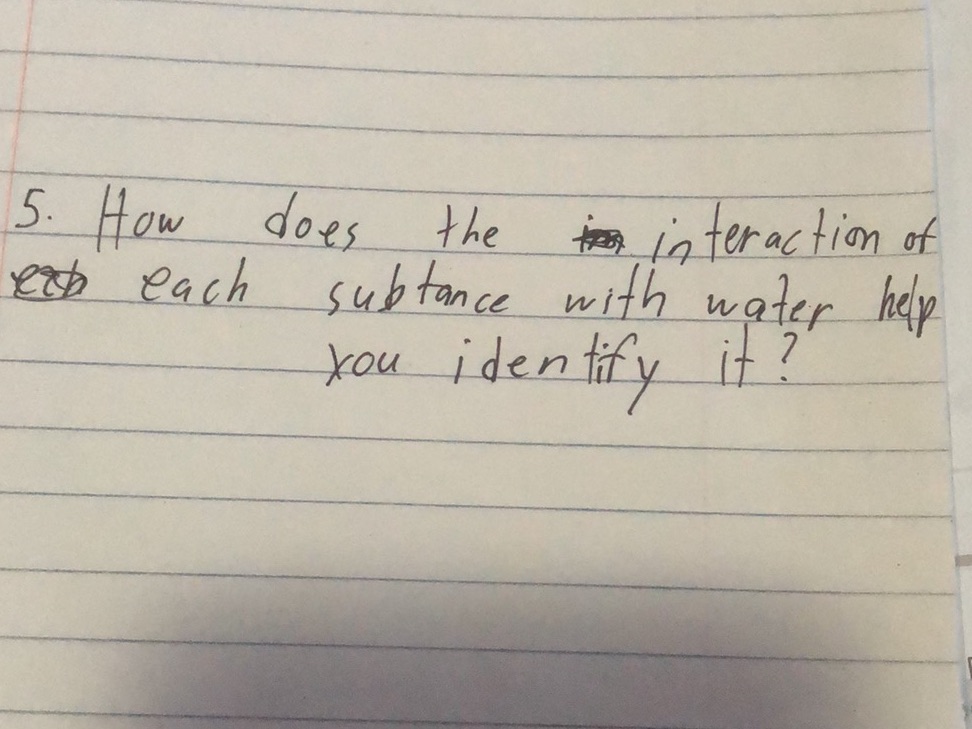 5. How does the interaction of
each subtance with water help
you identify it?